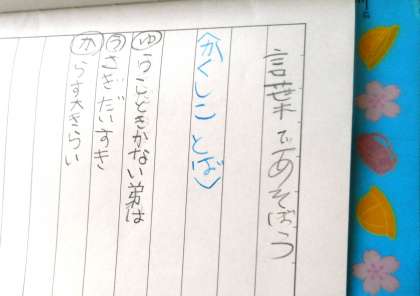 言葉であそぼう
〈かくしことば〉
ゆうことをきかない弟は
うさぎだいすき
からす大きらい